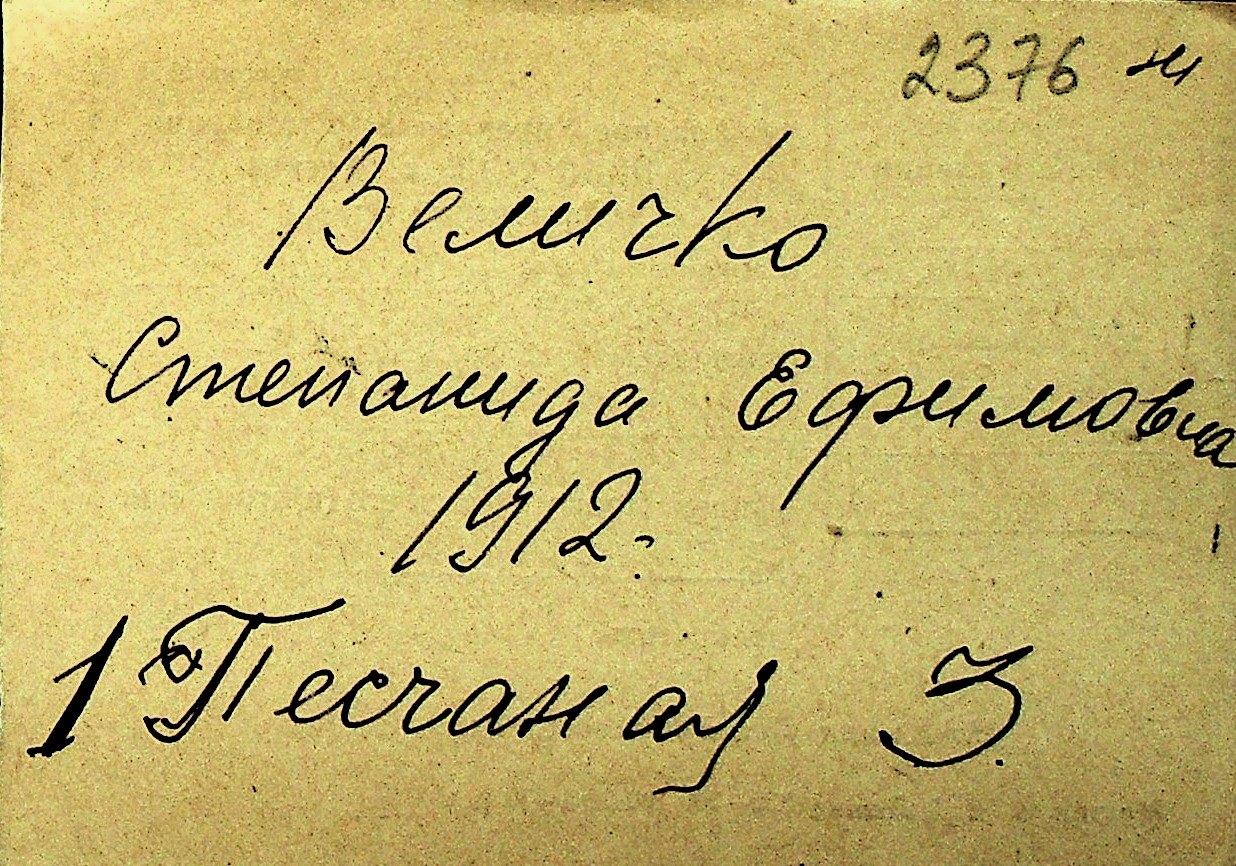 2376 н
Величко
Степанида Ефимовна
1912.
1 Песчаная 3.